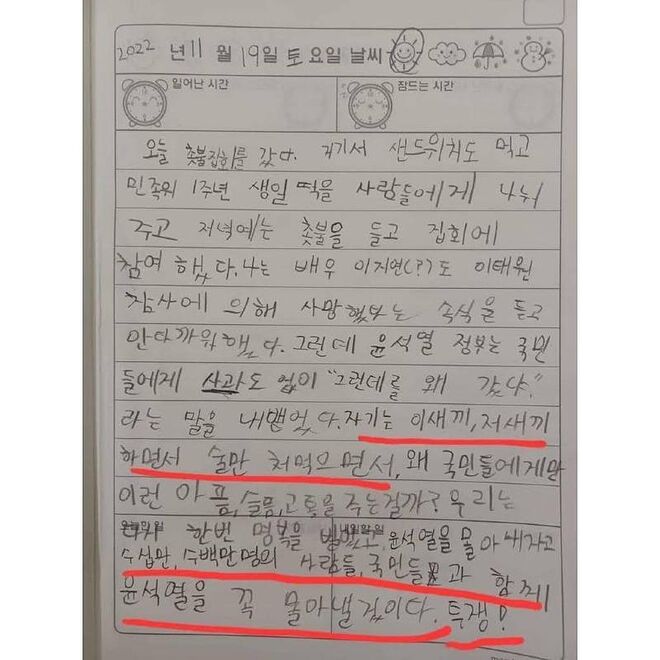 2022 년 11 월 19일 토 요일 날씨
일어난 시간 잠드는 시간
오늘 촛불집회를 갔다. 거기서 샌드위치도 먹고
민족위 1주년 생일 떡을 사람들에게 나눠
주고 저녁에는 촛불을 들고 집회에
참여 했다. 나는 배우 이지연(?)도 이태원
참사에 의해 사망했다는 소식을 듣고
안타까워했다. 그런데 윤석열 정부는 국민
들에게 사과도 없이 "그런데를 왜 갔냐."
라는 말을 내뱉었다. 자기는 이새끼, 저새끼
하면서 술만 처먹으면서, 왜 국민들에게만
이런 아픔, 슬픔, 고통을 주는걸까? 우리는
다시 한번 명복을 빌었고, 윤석열을 몰아내자고
수십만, 수백만명의 사람들, 국민들과 함께
윤석열을 꼭 몰아낼것이다. 투쟁!